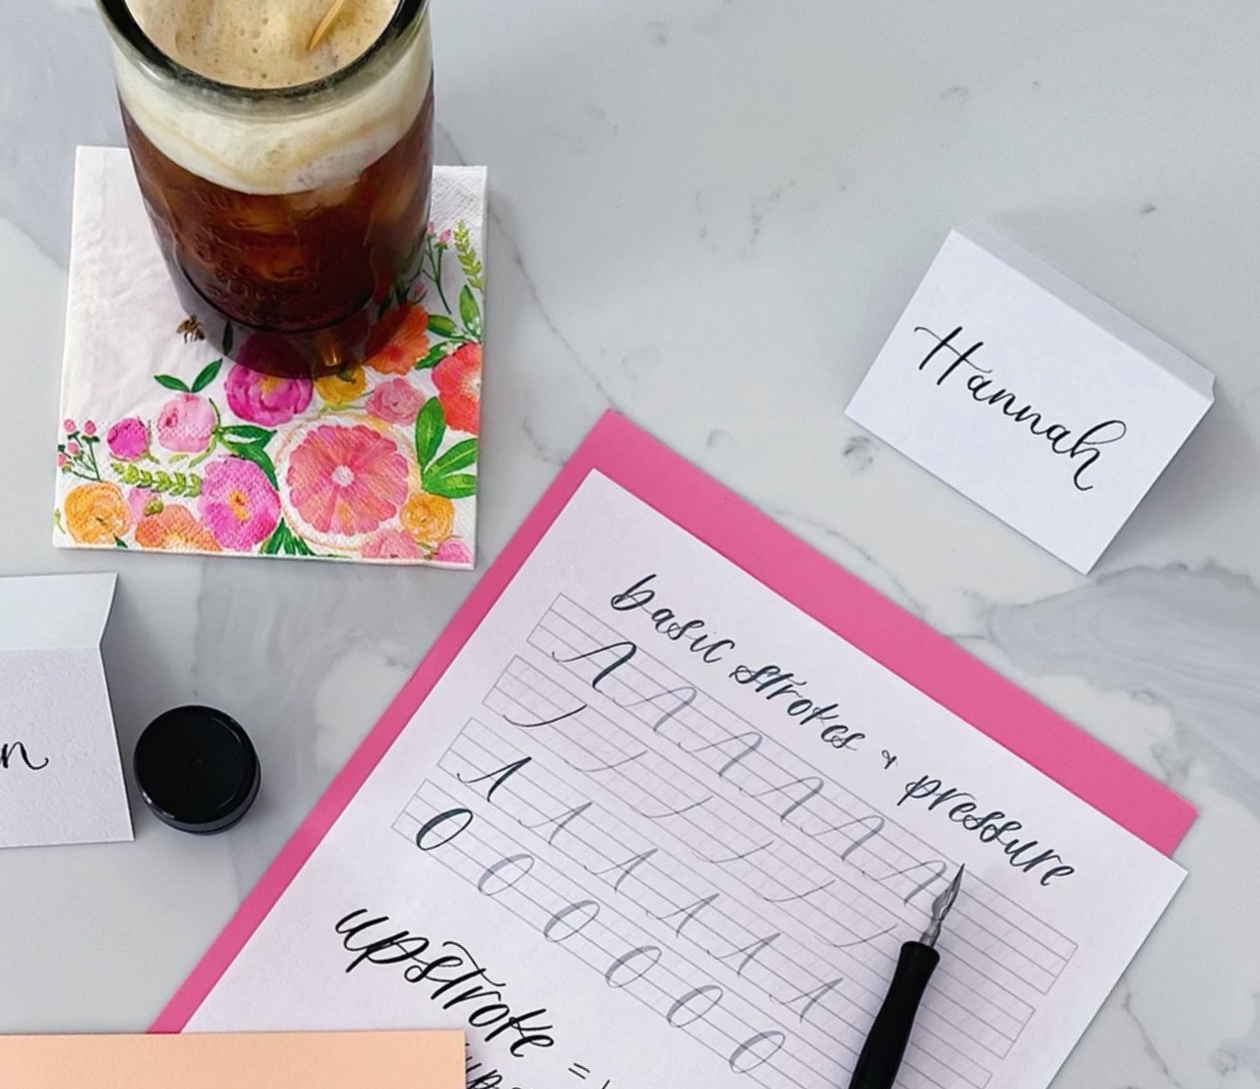 Hannah
basic strokes & pressure
n
upstroke =